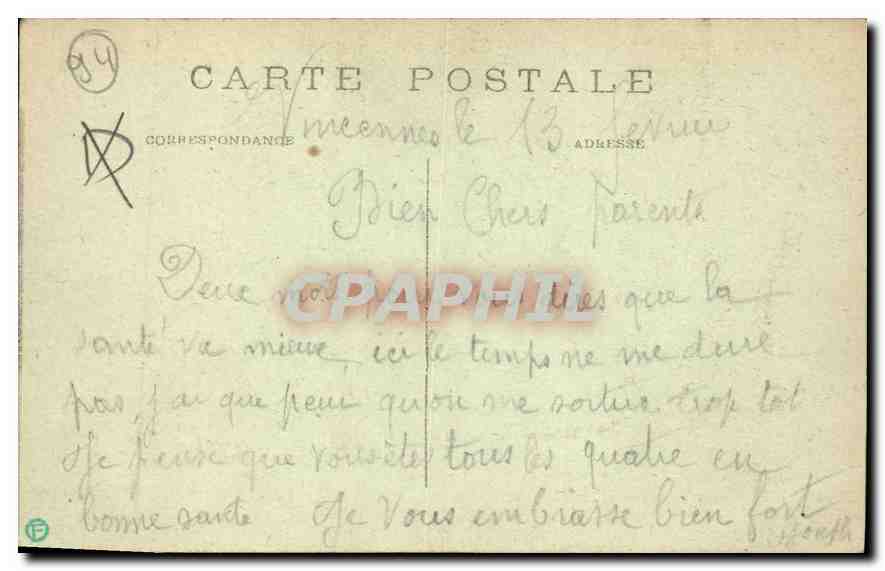 94
CARTE POSTALE
Vincennes le 13 fevrier
CORRESPONDANCE
ADRESSE
Bien Chers parents
Deux mots pour vous dires que la
santé va mieux, ici le temps ne me dure
pas, j'ai que peur qu'on me sortire trop tot
Je pense que vous êtes tous les quatre en
bonne sante Je vous embrasse bien fort
CPAPHIL
F